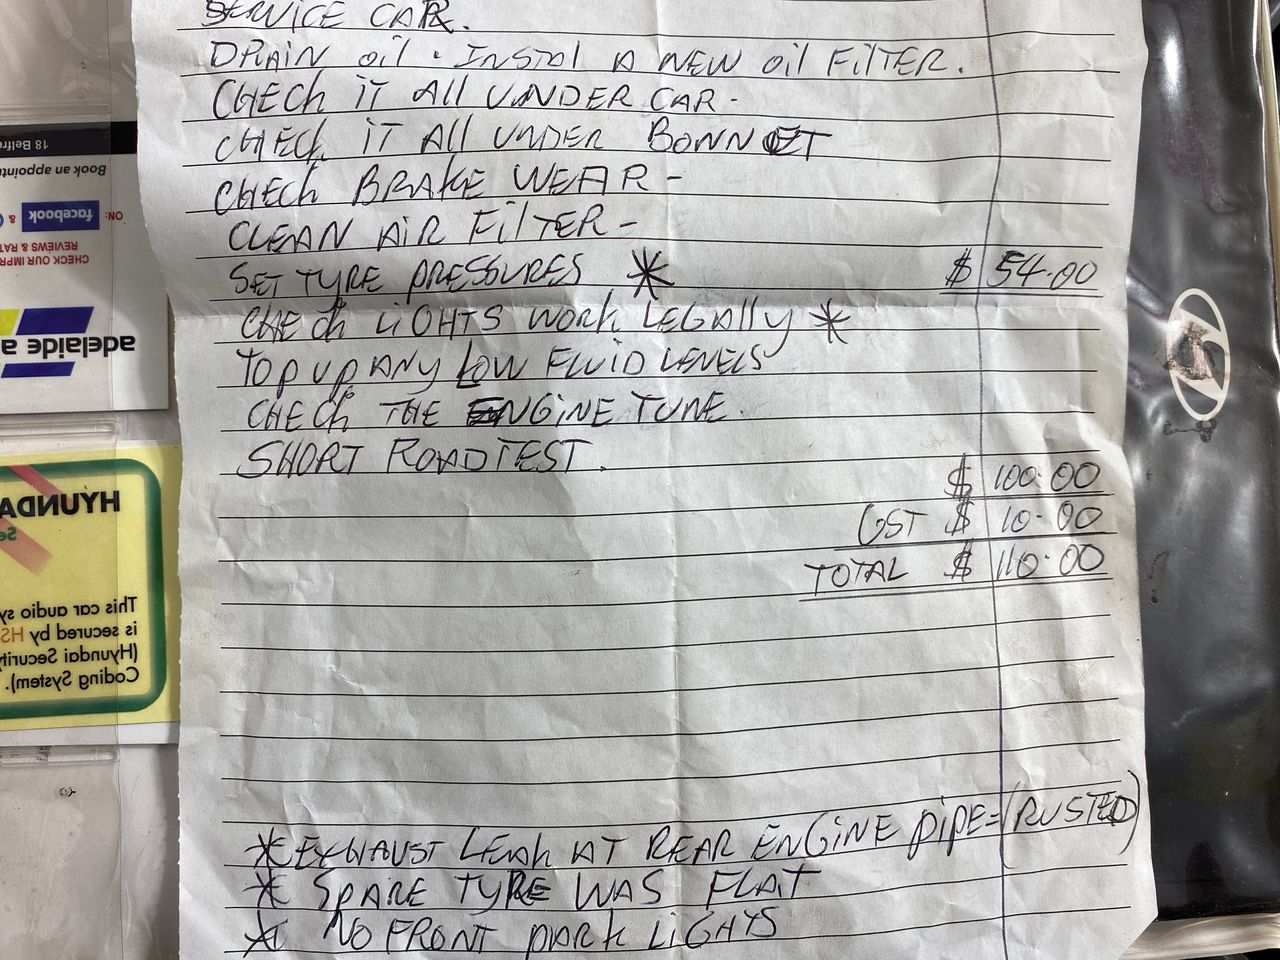 SERVICE CAR.
DRAIN OIL. INSTAL A NEW OIL FILTER.
CHECK IT ALL UNDER CAR -
CHECK IT ALL UNDER BONNET
CHECK BRAKE WEAR -
CLEAN AIR FILTER -
SET TYRE PRESSURES * $ 54.00
CHECK LIGHTS WORK LEGALLY *
TOP UP ANY LOW FLUID LEVELS
CHECK THE ENGINE TUNE.
SHORT ROADTEST.
$ 100.00
GST $ 10.00
TOTAL $ 110.00
* EXHAUST LEAK AT REAR ENGINE PIPE = (RUSTED)
* SPARE TYRE WAS FLAT
* NO FRONT PARK LIGHTS
18 Belfr
Book an appointm
ON: facebook &
REVIEWS & RAT
CHECK OUR IMPR
adelaide a
HYUNDA
Se
This car audio sy
is secured by HS
(Hyundai Securit
Coding System).